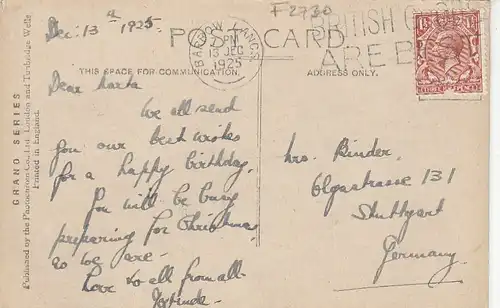 Dec. 13th 1925
F2730
BARROW LANCS
PM
13 DEC
1925
BRITISH GOODS
ARE B
POST CARD
THIS SPACE FOR COMMUNICATION.
ADDRESS ONLY.
Dear Marta
We all send
you our best wishes
for a happy birthday.
You will be busy
preparing for Christmas
as we are.
Love to all from all.
Mrs. Binder.
Olgastrasse 131
Stuttgart
Germany.
GRANO SERIES
Published by the Photochrom Co. Ltd. London and Tunbridge Wells
Printed in England.